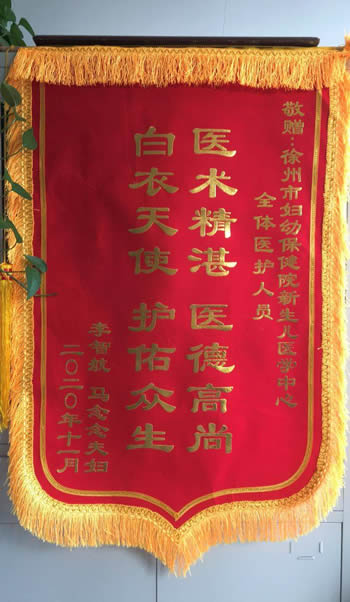 敬赠：徐州市妇幼保健院新生儿医学中心
全体医护人员
医术精湛 医德高尚
白衣天使 护佑众生
李智航 马念念夫妇
二〇二〇年十一月